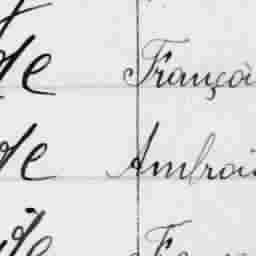 de Françoi
de Ambroi
de